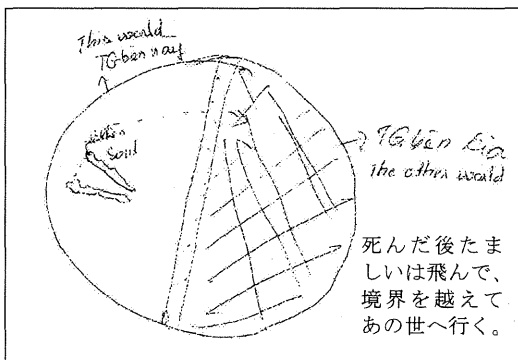 This world
TG bên này
Soul
TG bên kia
The other world
死んだ後たま
しいは飛んで、
境界を越えて
あの世へ行く。